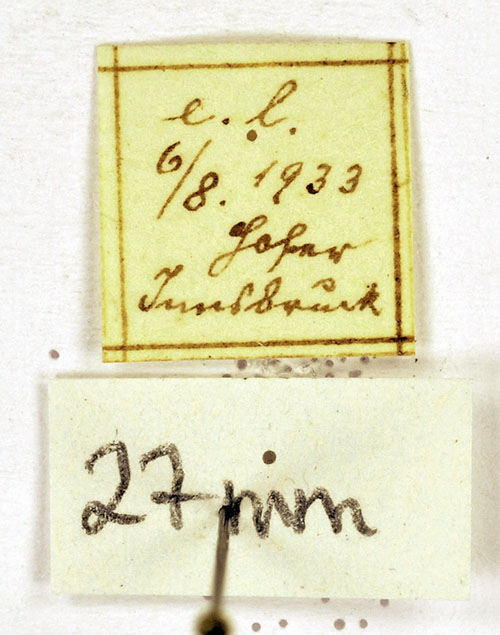 e. l.
6/8. 1933
Hofer
Innsbruck
27 mm